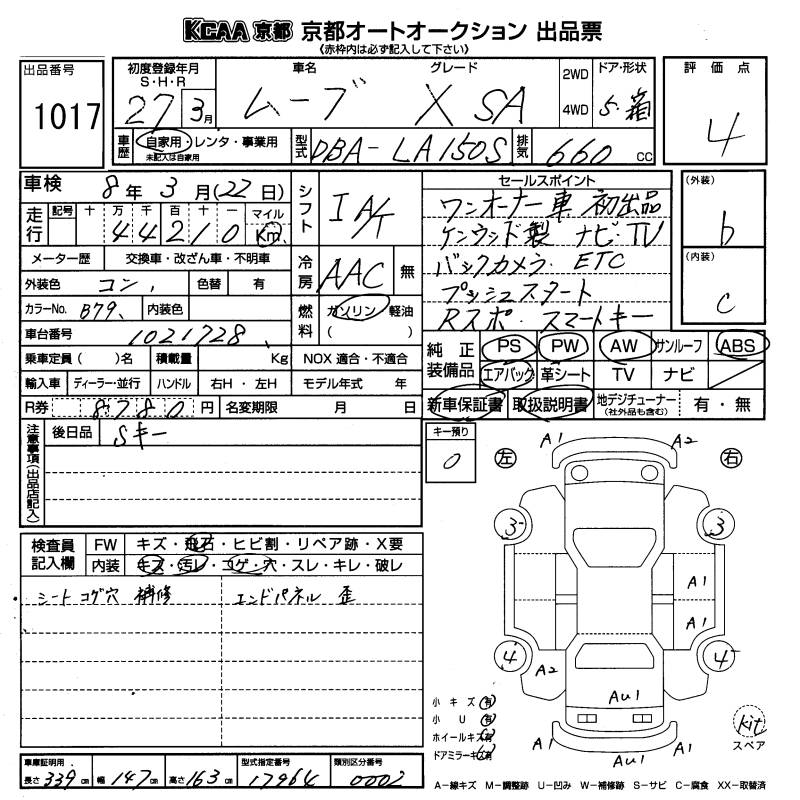 KCAA 京都 京都オートオークション 出品票
《赤枠内は必ず記入して下さい》
出品番号 1017
初度登録年月 S・H・R 27 3月
車名 ムーブ
グレード X SA
2WD 4WD
ドア・形状 5・箱
評価点 4
車歴 自家用・レンタ・事業用 未記入は自家用
型式 DBA-LA150S
排気 660 cc
車検 8年 3月(22日)
走行 記号 十 万 千 百 十 一 マイル Km
44210
メーター歴 交換車・改ざん車・不明車
外装色 コン, 色替 有
カラーNo. B79, 内装色
車台番号 1021728
乗車定員( )名 積載量 Kg NOX 適合・不適合
輸入車 ディーラー・並行 ハンドル 右H・左H モデル年式 年
R券 8780 円 名変期限 月 日
シフト IA/T
冷房 AAC 無
燃料 ガソリン 軽油 ( )
セールスポイント
ワンオーナー車 初出品
ケンウッド製 ナビ・TV
バックカメラ. ETC
プッシュスタート
Rスポ. スマートキー
(外装) b
(内装) c
純正装備品 PS PW AW サンルーフ ABS
エアバック 革シート TV ナビ
新車保証書 取扱説明書 地デジチューナー (社外品も含む) 有・無
注意事項(出品店記入)
後日品 Sキー
キー預り 0
検査員記入欄
FW キズ・飛石・ヒビ割・リペア跡・X要
内装 キズ・汚レ・コゲ・穴・スレ・キレ・破レ
シート コゲ穴 補修
エンドパネル 歪
左 右
A1 A2
3 3
A1
A1
4 4
A2
AU1
A1 AU1 A1
小キズ 有
小U 有
ホイールキズ 有
ドアミラーキズ 有
kit
スペア
車庫証明用 長さ 339 cm 幅 147 cm 高さ 163 cm
型式指定番号 17964
類別区分番号 0002
A―線キズ M―調整跡 U―凹み W―補修跡 S―サビ C―腐食 XX―取替済